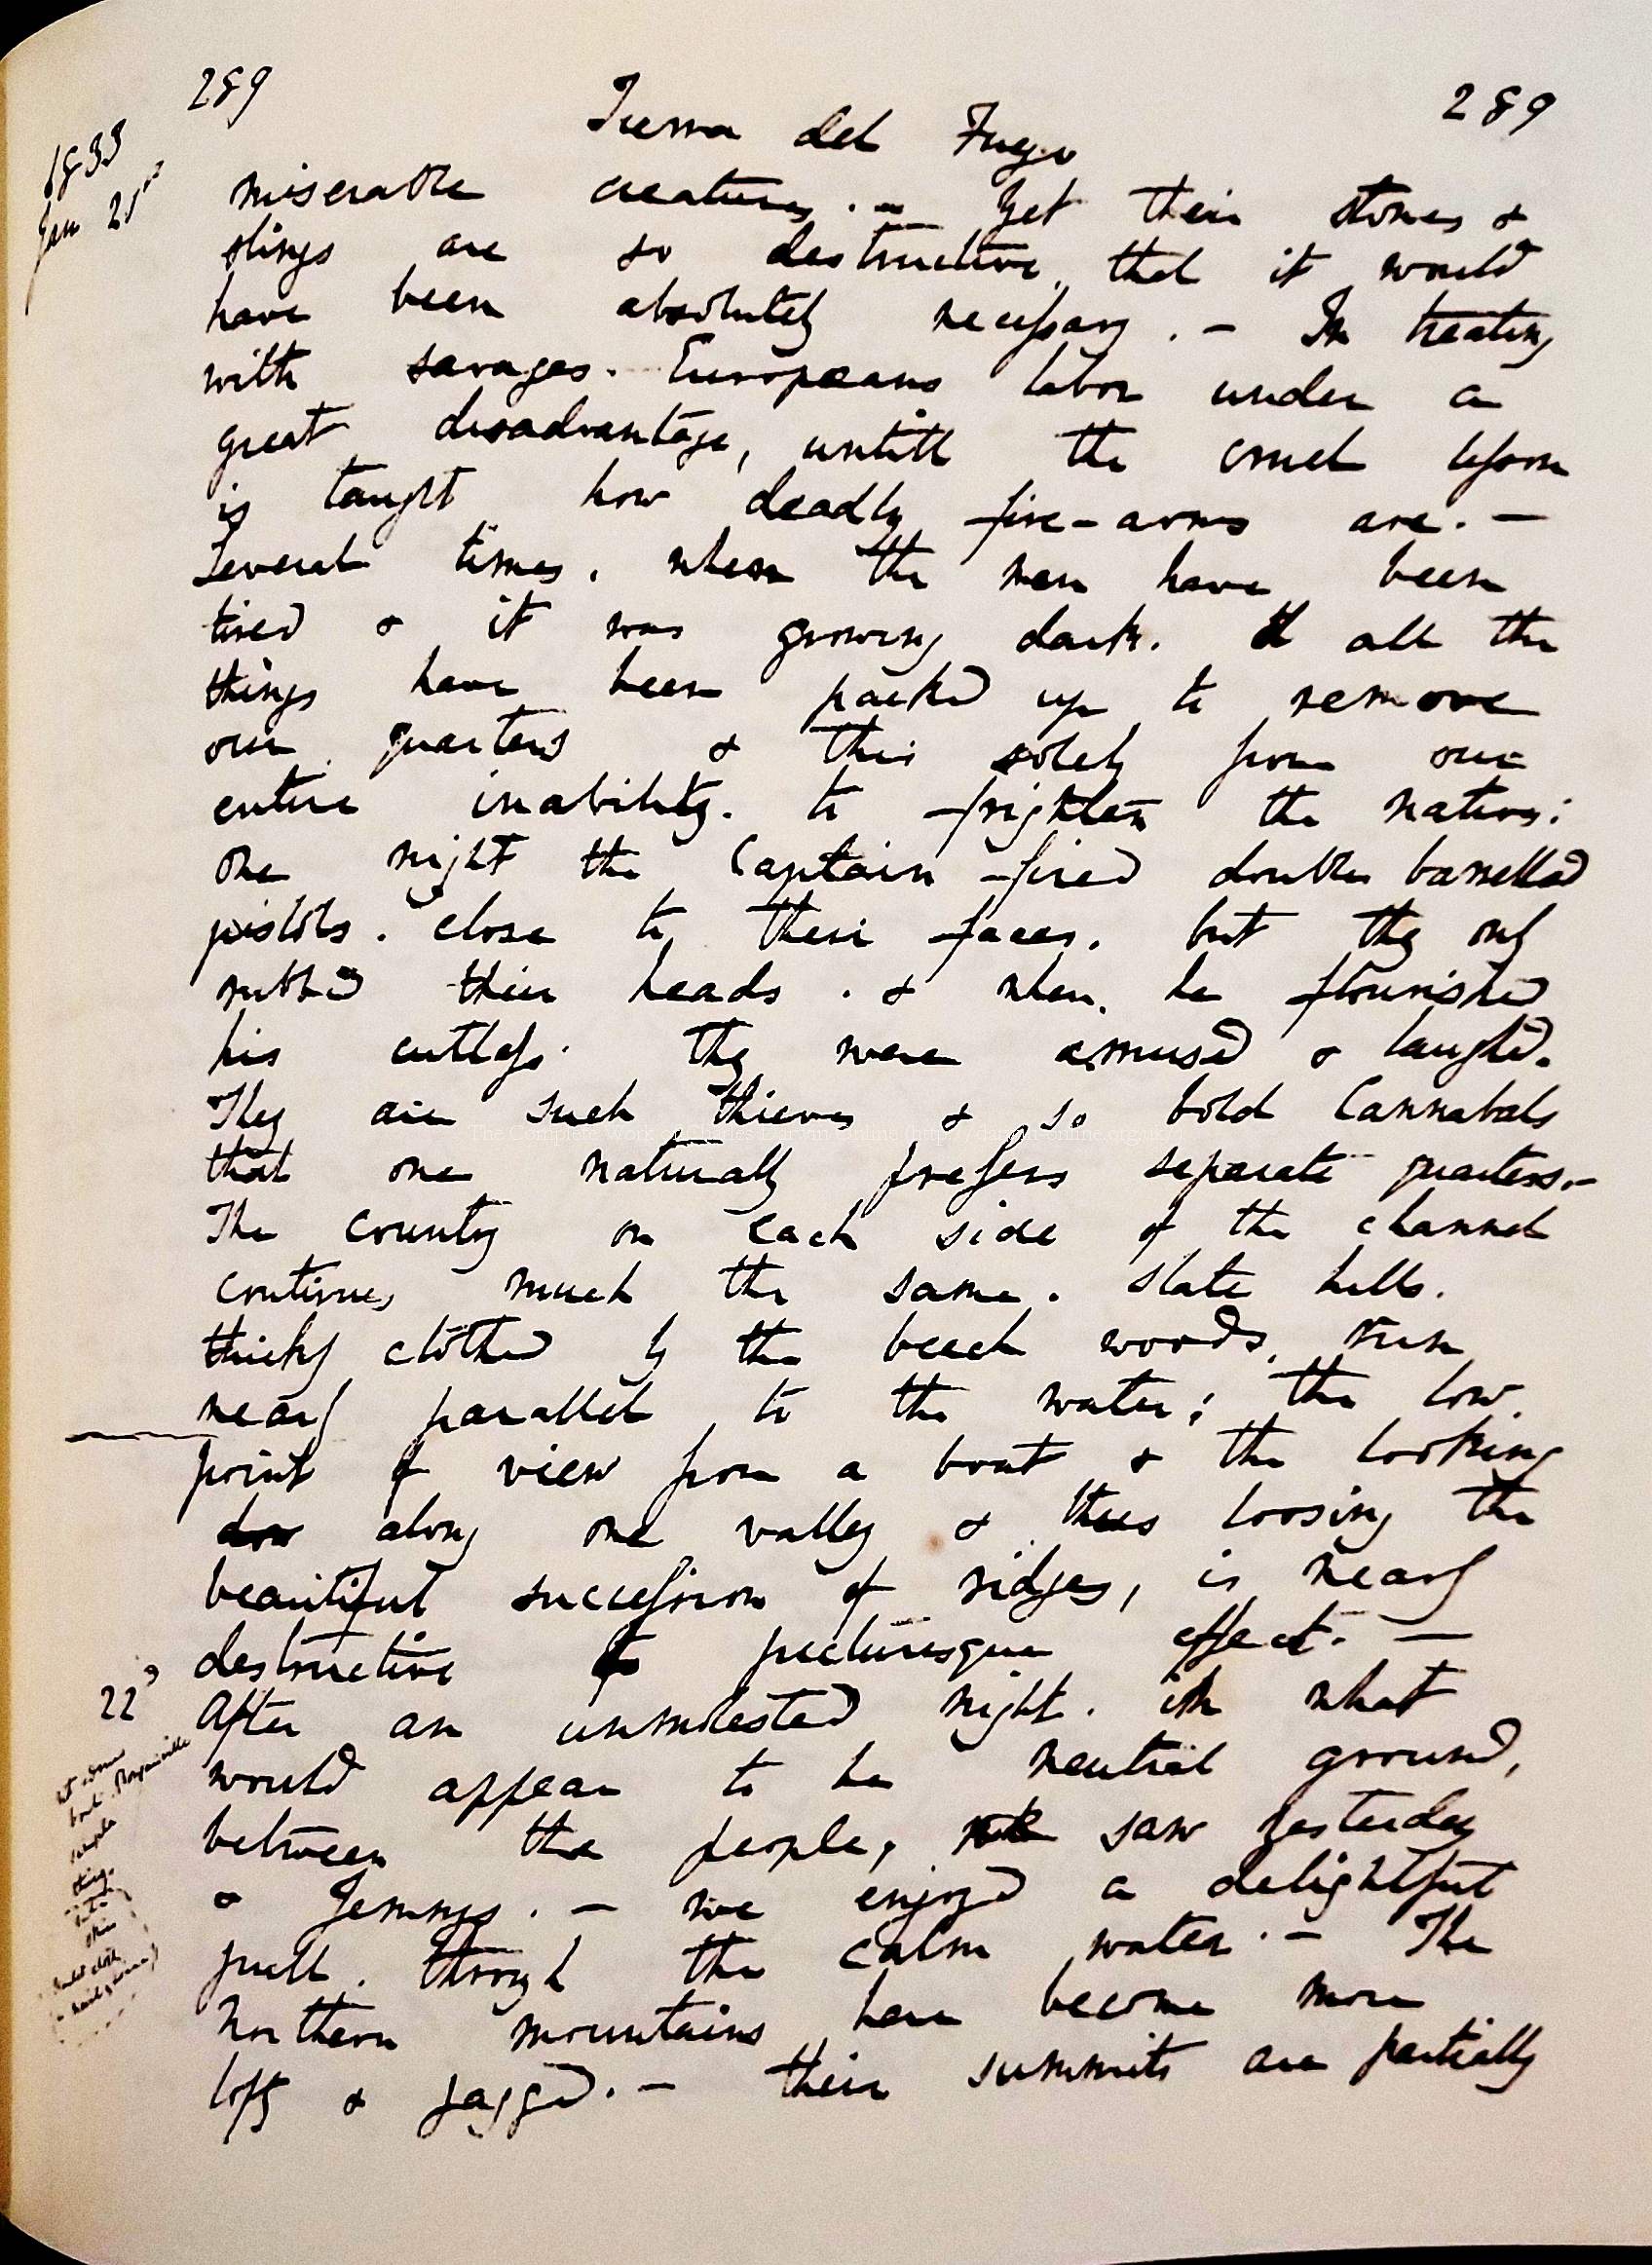 289 Tierra del Fuego 289
1833
Jan 21st
miserable creatures. — Yet their stones &
slings are so destructive that it would
have been absolutely necessary. — In treating
with savages. Europeans labor under a
great disadvantage, untill the cruel lesson
is taught how deadly fire-arms are. —
Several times, when the men have been
tired & it was growing dark. all the
things have been packed up to remove
our quarters & this solely from our
entire inability. to frighten the natives:
One night the Captain fired double barrelled
pistols. close to their faces. but they only
rubbed their heads. & when. he flourished
his cutlass. they were amused & laughed.
They are such thieves & so bold Cannabals
that one naturally prefers separate quarters. —
The country on each side of the channel
continues much the same. slate hills.
thickly clothed by the beech woods, run
nearly parallel to the water; the low
point of view from a boat & the looking
along one valley & thus loosing the
beautiful succession of ridges, is nearly
destructive to picturesque effect. —
22d After an unmolested night. in what
would appear to be neutral ground,
between the people, we saw yesterday
& Jemmys. — we enjoyed a delightful
pull. through the calm water. — The
Northern mountains here become more
lofty & jagged. — their summits are partially
Bougainville
people
things